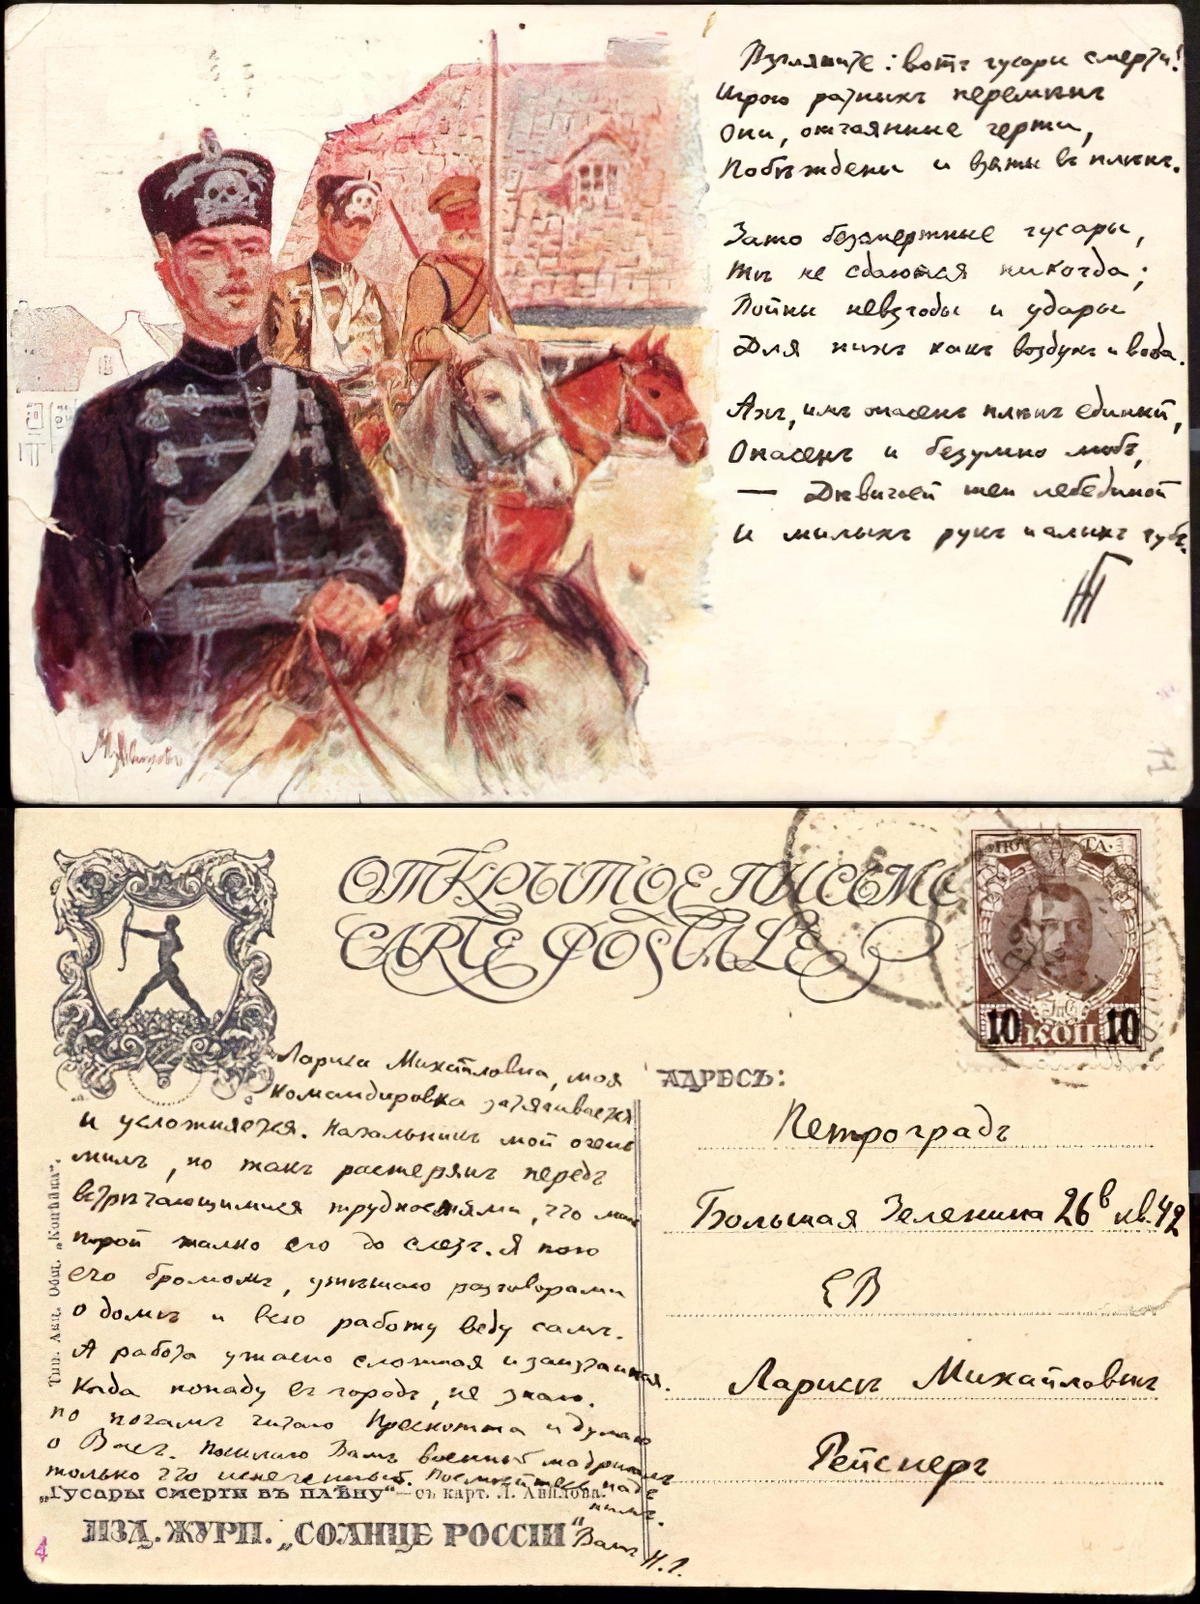 Взгляните: вотъ гусары смерти!
Игрою ратныхъ перемѣнъ
Они, отчаянные черти,
Побѣждены и взяты въ плѣнъ.
Зато безсмертные гусары,
Тѣ не сдаются никогда;
Войны невзгоды и удары
Для нихъ какъ воздухъ и вода.
Ахъ, имъ опасенъ плѣнъ единый,
Опасенъ и безумно любъ,
— Дѣвичьей шеи лебединой
И милыхъ рукъ и алыхъ губъ.
НГ
ОТКРЫТОЕ ПИСЬМО
CARTE POSTALE
ПОЧТА
10 КОП 10
Лариса Михайловна, моя
командировка затягивается
и усложняется. Начальникъ мой очень
милъ, но такъ растерянъ передъ
встрѣчающимися трудностями, что мнѣ
порой жалко его до слезъ. Я пою
его бромомъ, утѣшаю разговорами
о домѣ и всю работу веду самъ.
А работа ужасно сложная и запутанная.
Когда попаду въ городъ, не знаю.
По ночамъ читаю Прескотта и думаю
о Васъ. Посылаю Вамъ военный мадригалъ
только что испеченный. Посмѣйтесь надъ
нимъ.
Вашъ Н.Г.
АДРЕСЪ:
Петроградъ
Большая Зеленина 26в кв. 42
ЕВ
Ларисѣ Михайловнѣ
Рейснеръ
Тип. Акц. Общ. „Копѣйка".
„Гусары смерти въ плѣну" — съ карт. Л. Авилова.
ИЗД. ЖУРН. „СОЛНЦЕ РОССІИ"
4